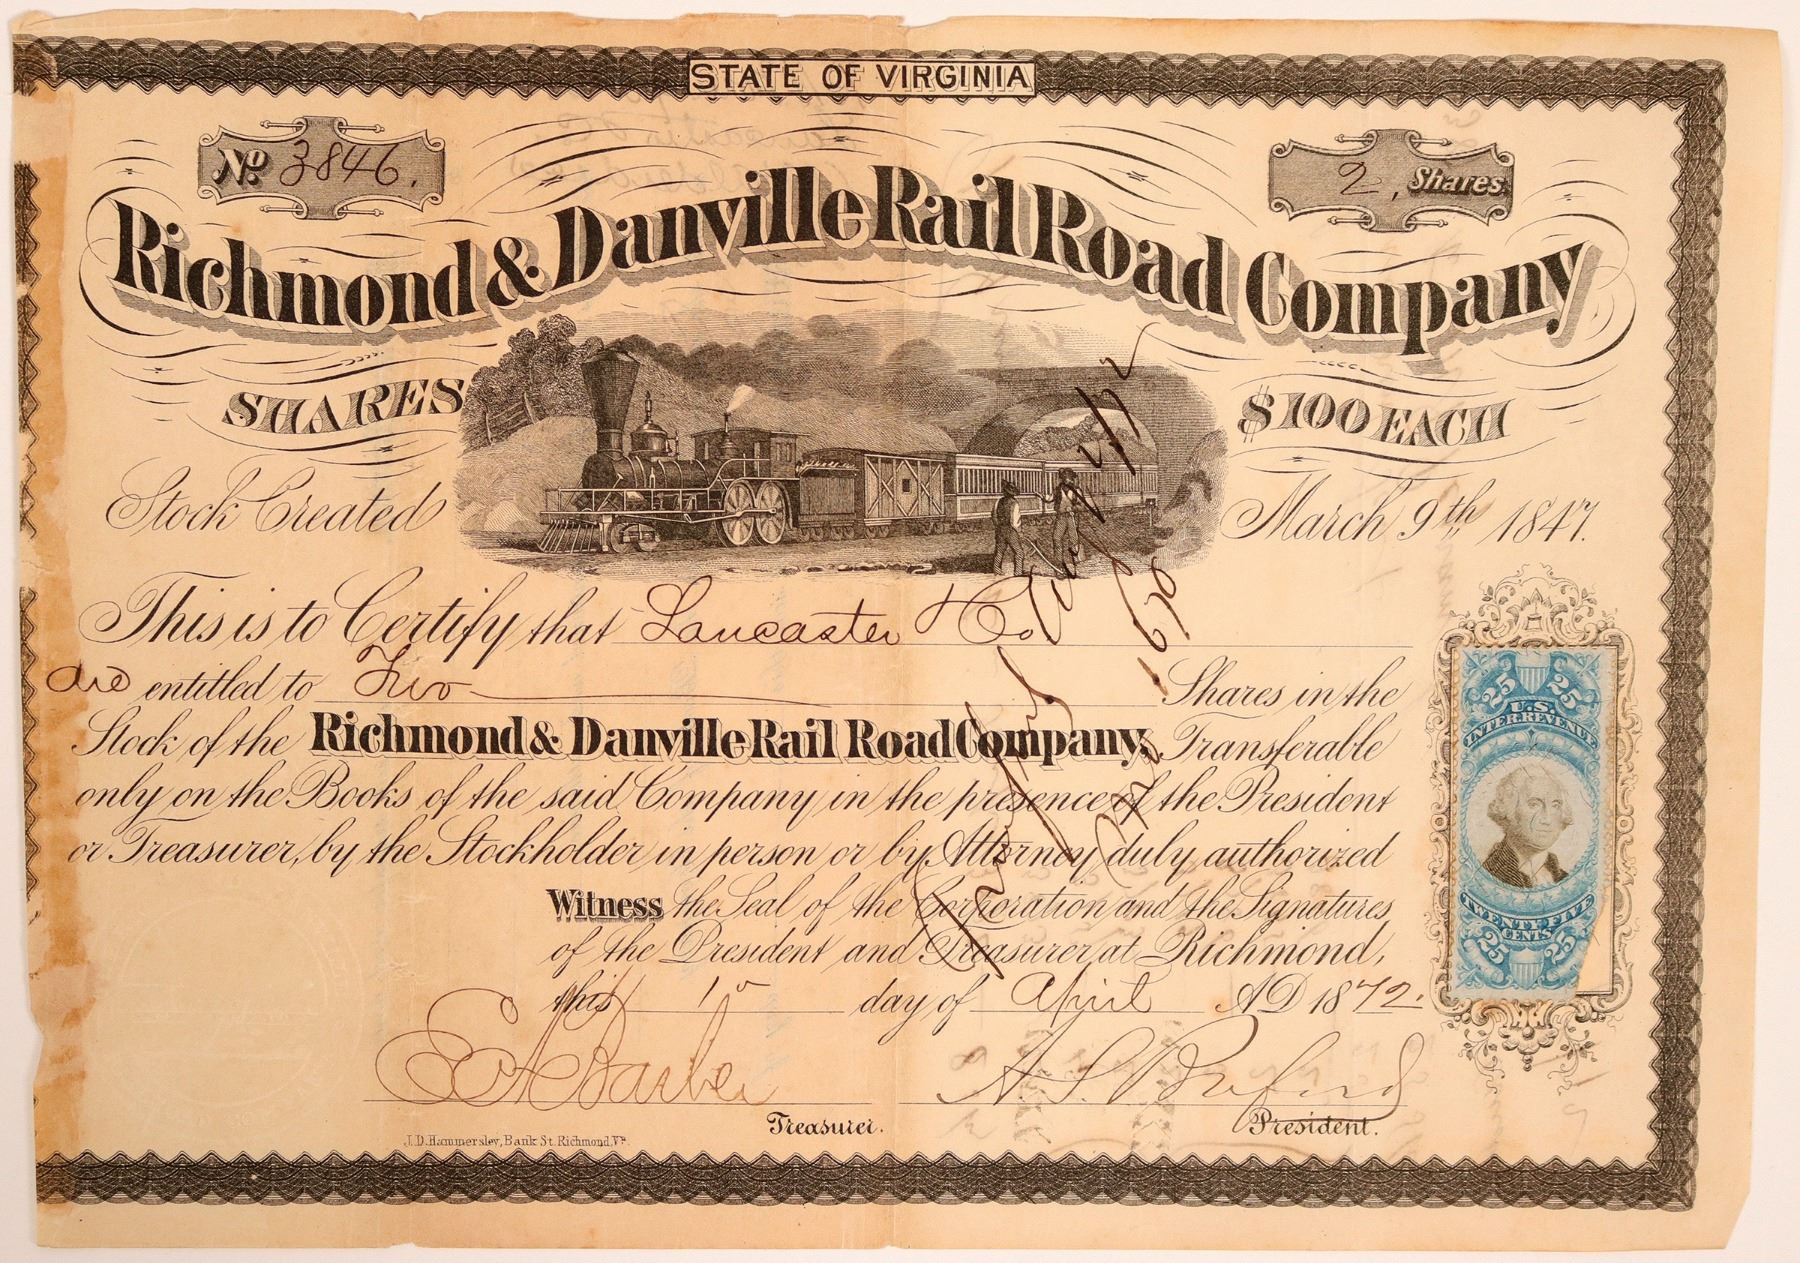 STATE OF VIRGINIA
No. 3846.
2, Shares
Richmond & Danville Rail Road Company
SHARES $100 EACH
Stock Created March 9th, 1847.
This is to Certify that Lancaster & Co
are entitled to Two Shares in the
Stock of the Richmond & Danville Rail Road Company, Transferable
only on the Books of the said Company in the presence of the President
or Treasurer, by the Stockholder in person or by Attorney duly authorized
Witness the Seal of the Corporation and the Signatures
of the President and Treasurer at Richmond,
this 1st day of April AD 1872.
A. S. Buford
Treasurer.
President.
J. D. Hammersley, Bank St. Richmond, Va.
25 25
U.S.
INTER. REVENUE
TWENTY FIVE
CENTS
25 25